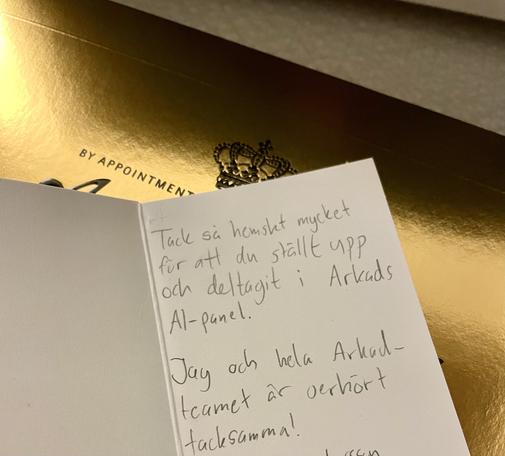 BY APPOINTMENT
Tack så hemskt mycket
för att du ställt upp
och deltagit i Arkads
AI-panel.
Jag och hela Arkad-
teamet är oerhört
tacksamma!